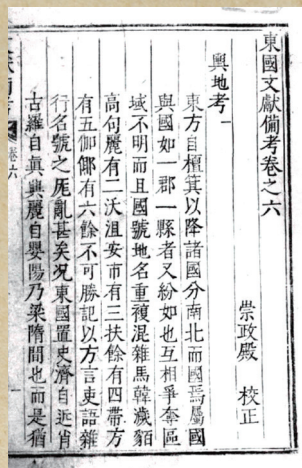 東國文獻備考卷之六
崇政殿 校正
輿地考一
東方自檀箕以降諸國分南北而國焉屬國
與國如一郡一縣者又紛如也互相爭奪區
域不明而且國號地名重複混雜馬韓濊貊
高句麗有二沃沮安市有三扶餘有四帶方
有五伽倻有六餘不可勝記以方言吏語雜
行名號之厖亂甚矣況東國置史濟自近肖
古羅自眞興麗自嬰陽乃梁隋間也而是猶
卷六